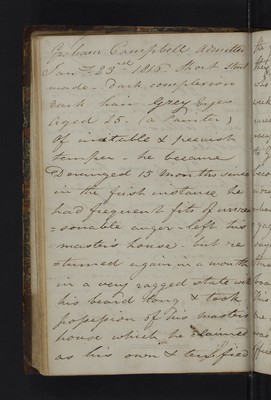 Graham Campbell Admitted
Jany 23rd 1816. Short stout
made - Dark complexion
dark hair - Grey Eyes
Aged 25. (a Painter)
Of irritable & peevish
temper - he became
Deranged 15 months since
in the first instance he
had frequent fits of unrea
=sonable anger - left his
master's house - but re
=turned again in a month
in a very ragged state with
his beard long & took
possession of his masters
house which he claimed
as his own & terrified